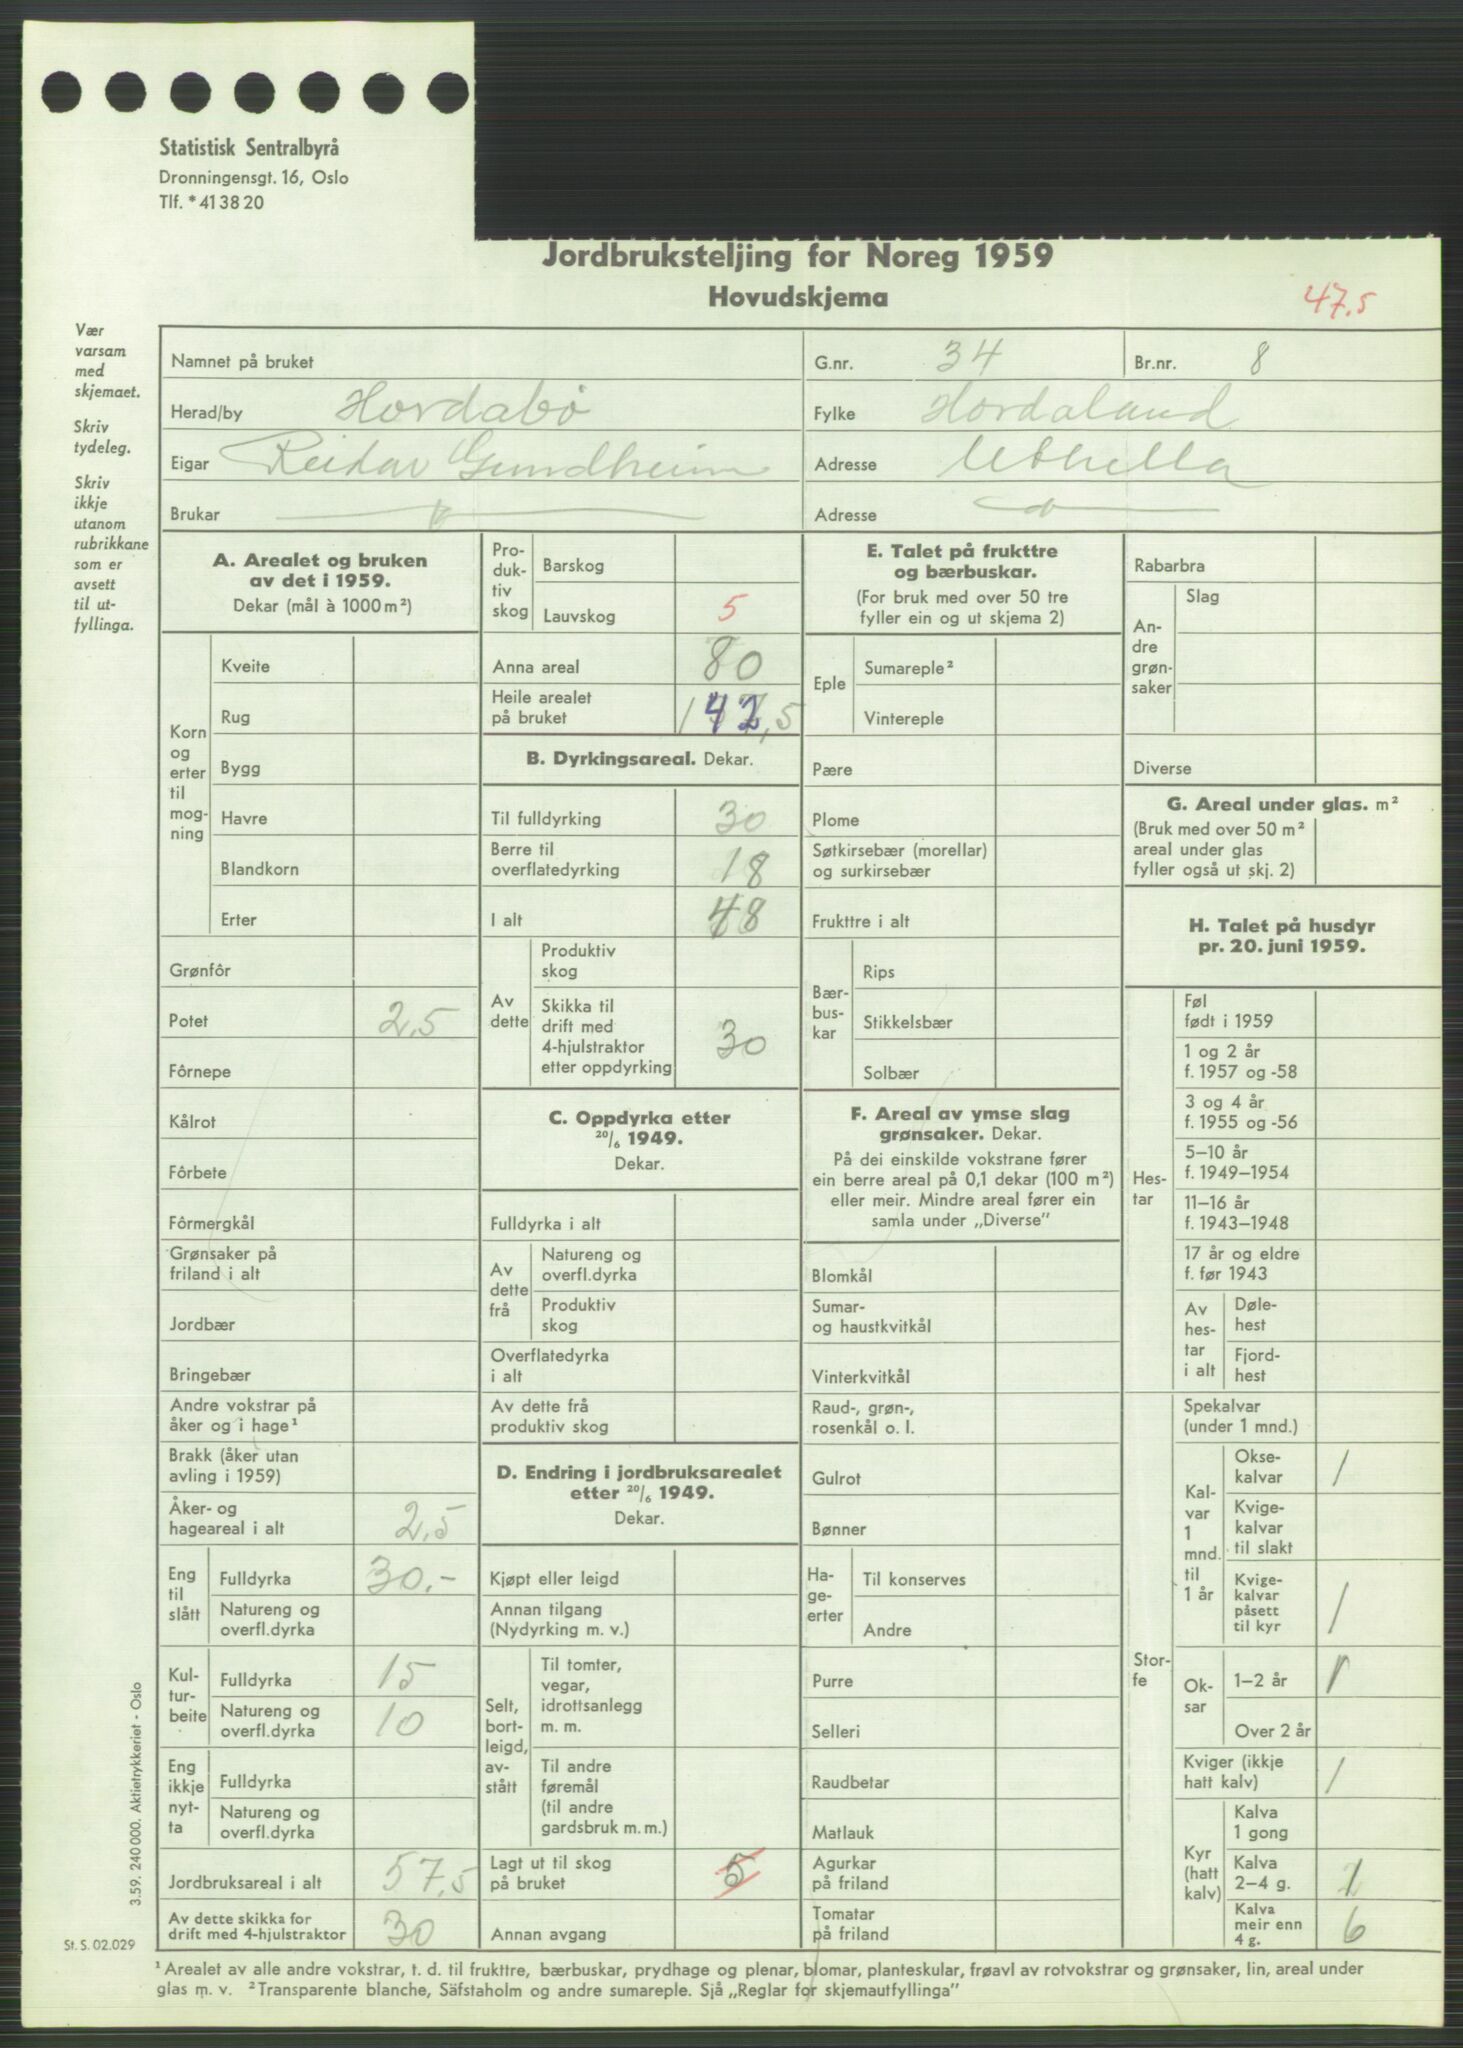 Statistisk Sentralbyrå
Dronningensgt. 16, Oslo
Tlf. *41 38 20
Jordbruksteljing for Noreg 1959
Hovudskjema
47,5
Vær
varsam
med
skjemaet.
Skriv
tydeleg.
Skriv
ikkje
utanom
rubrikkane
som er
avsett
til ut-
fyllinga.
Namnet på bruket
G.nr. 34
Br.nr. 8
Herad/by Hordabö
Fylke Hordaland
Eigar Reidar Gundheim
Adresse
Brukar
Adresse
A. Arealet og bruken
av det i 1959.
Dekar (mål à 1000 m²)
Korn
og
erter
til
mog-
ning
Kveite
Rug
Bygg
Havre
Blandkorn
Erter
Grønfôr
Potet 2,5
Fôrnepe
Kålrot
Fôrbete
Fôrmergkål
Grønsaker på
friland i alt
Jordbær
Bringebær
Andre vokstrar på
åker og i hage¹
Brakk (åker utan
avling i 1959)
Åker- og
hageareal i alt 2,5
Eng
til
slått
Fulldyrka 30.-
Natureng og
overfl.dyrka
Kul-
tur-
beite
Fulldyrka 15
Natureng og
overfl.dyrka 10
Eng
ikkje
nyt-
ta
Fulldyrka
Natureng og
overfl.dyrka
Jordbruksareal i alt 57,5
Av dette skikka for
drift med 4-hjulstraktor 30
Pro-
duk-
tiv
skog
Barskog
Lauvskog 5
Anna areal 80
Heile arealet
på bruket 142,5
B. Dyrkingsareal. Dekar.
Til fulldyrking 30
Berre til
overflatedyrking 18
I alt 48
Av
dette
Produktiv
skog
Skikka til
drift med
4-hjulstraktor
etter oppdyrking 30
C. Oppdyrka etter
20/6 1949.
Dekar.
Fulldyrka i alt
Av
dette
frå
Natureng og
overfl.dyrka
Produktiv
skog
Overflatedyrka
i alt
Av dette frå
produktiv skog
D. Endring i jordbruksarealet
etter 20/6 1949.
Dekar.
Kjøpt eller leigd
Annan tilgang
(Nydyrking m. v.)
Selt,
bort-
leigd,
av-
stått
Til tomter,
vegar,
idrottsanlegg
m. m.
Til andre
føremål
(til andre
gardsbruk m. m.)
Lagt ut til skog
på bruket 5
Annan avgang
E. Talet på frukttre
og bærbuskar.
(For bruk med over 50 tre
fyller ein og ut skjema 2)
Eple
Sumareple²
Vintereple
Pære
Plome
Søtkirsebær (morellar)
og surkirsebær
Frukttre i alt
Bær-
bus-
kar
Rips
Stikkelsbær
Solbær
F. Areal av ymse slag
grønsaker. Dekar.
På dei einskilde vokstrane fører
ein berre areal på 0,1 dekar (100 m²)
eller meir. Mindre areal fører ein
samla under „Diverse”
Blomkål
Sumar-
og haustkvitkål
Vinterkvitkål
Raud-, grøn-,
rosenkål o. l.
Gulrot
Bønner
Ha-
ge-
erter
Til konserves
Andre
Purre
Selleri
Raudbetar
Matlauk
Agurkar
på friland
Tomatar
på friland
Rabarbra
An-
dre
grøn-
saker
Slag
Diverse
G. Areal under glas. m²
(Bruk med over 50 m²
areal under glas
fyller også ut skj. 2)
H. Talet på husdyr
pr. 20. juni 1959.
Hes-
tar
Føl
født i 1959
1 og 2 år
f. 1957 og -58
3 og 4 år
f. 1955 og -56
5–10 år
f. 1949–1954
11–16 år
f. 1943–1948
17 år og eldre
f. før 1943
Av
hes-
tar
i alt
Døle-
hest
Fjord-
hest
Stor-
fe
Spekalvar
(under 1 mnd.)
Kal-
var
1
mnd.
til
1 år
Okse-
kalvar 1
Kvige-
kalvar
til slakt
Kvige-
kalvar
påsett
til kyr 1
Ok-
sar
1–2 år 1
Over 2 år
Kviger (ikkje
hatt kalv) 1
Kyr
(hatt
kalv)
Kalva
1 gong
Kalva
2–4 g.
Kalva
meir enn
4 g. 6
3.59. 240 000. Aktietrykkeriet - Oslo
St. S. 02.029
¹ Arealet av alle andre vokstrar, t. d. til frukttre, bærbuskar, prydhage og plenar, blomar, planteskular, frøavl av rotvokstrar og grønsaker, lin, areal under
glas m. v. ² Transparente blanche, Säfstaholm og andre sumareple. Sjå „Reglar for skjemautfyllinga”